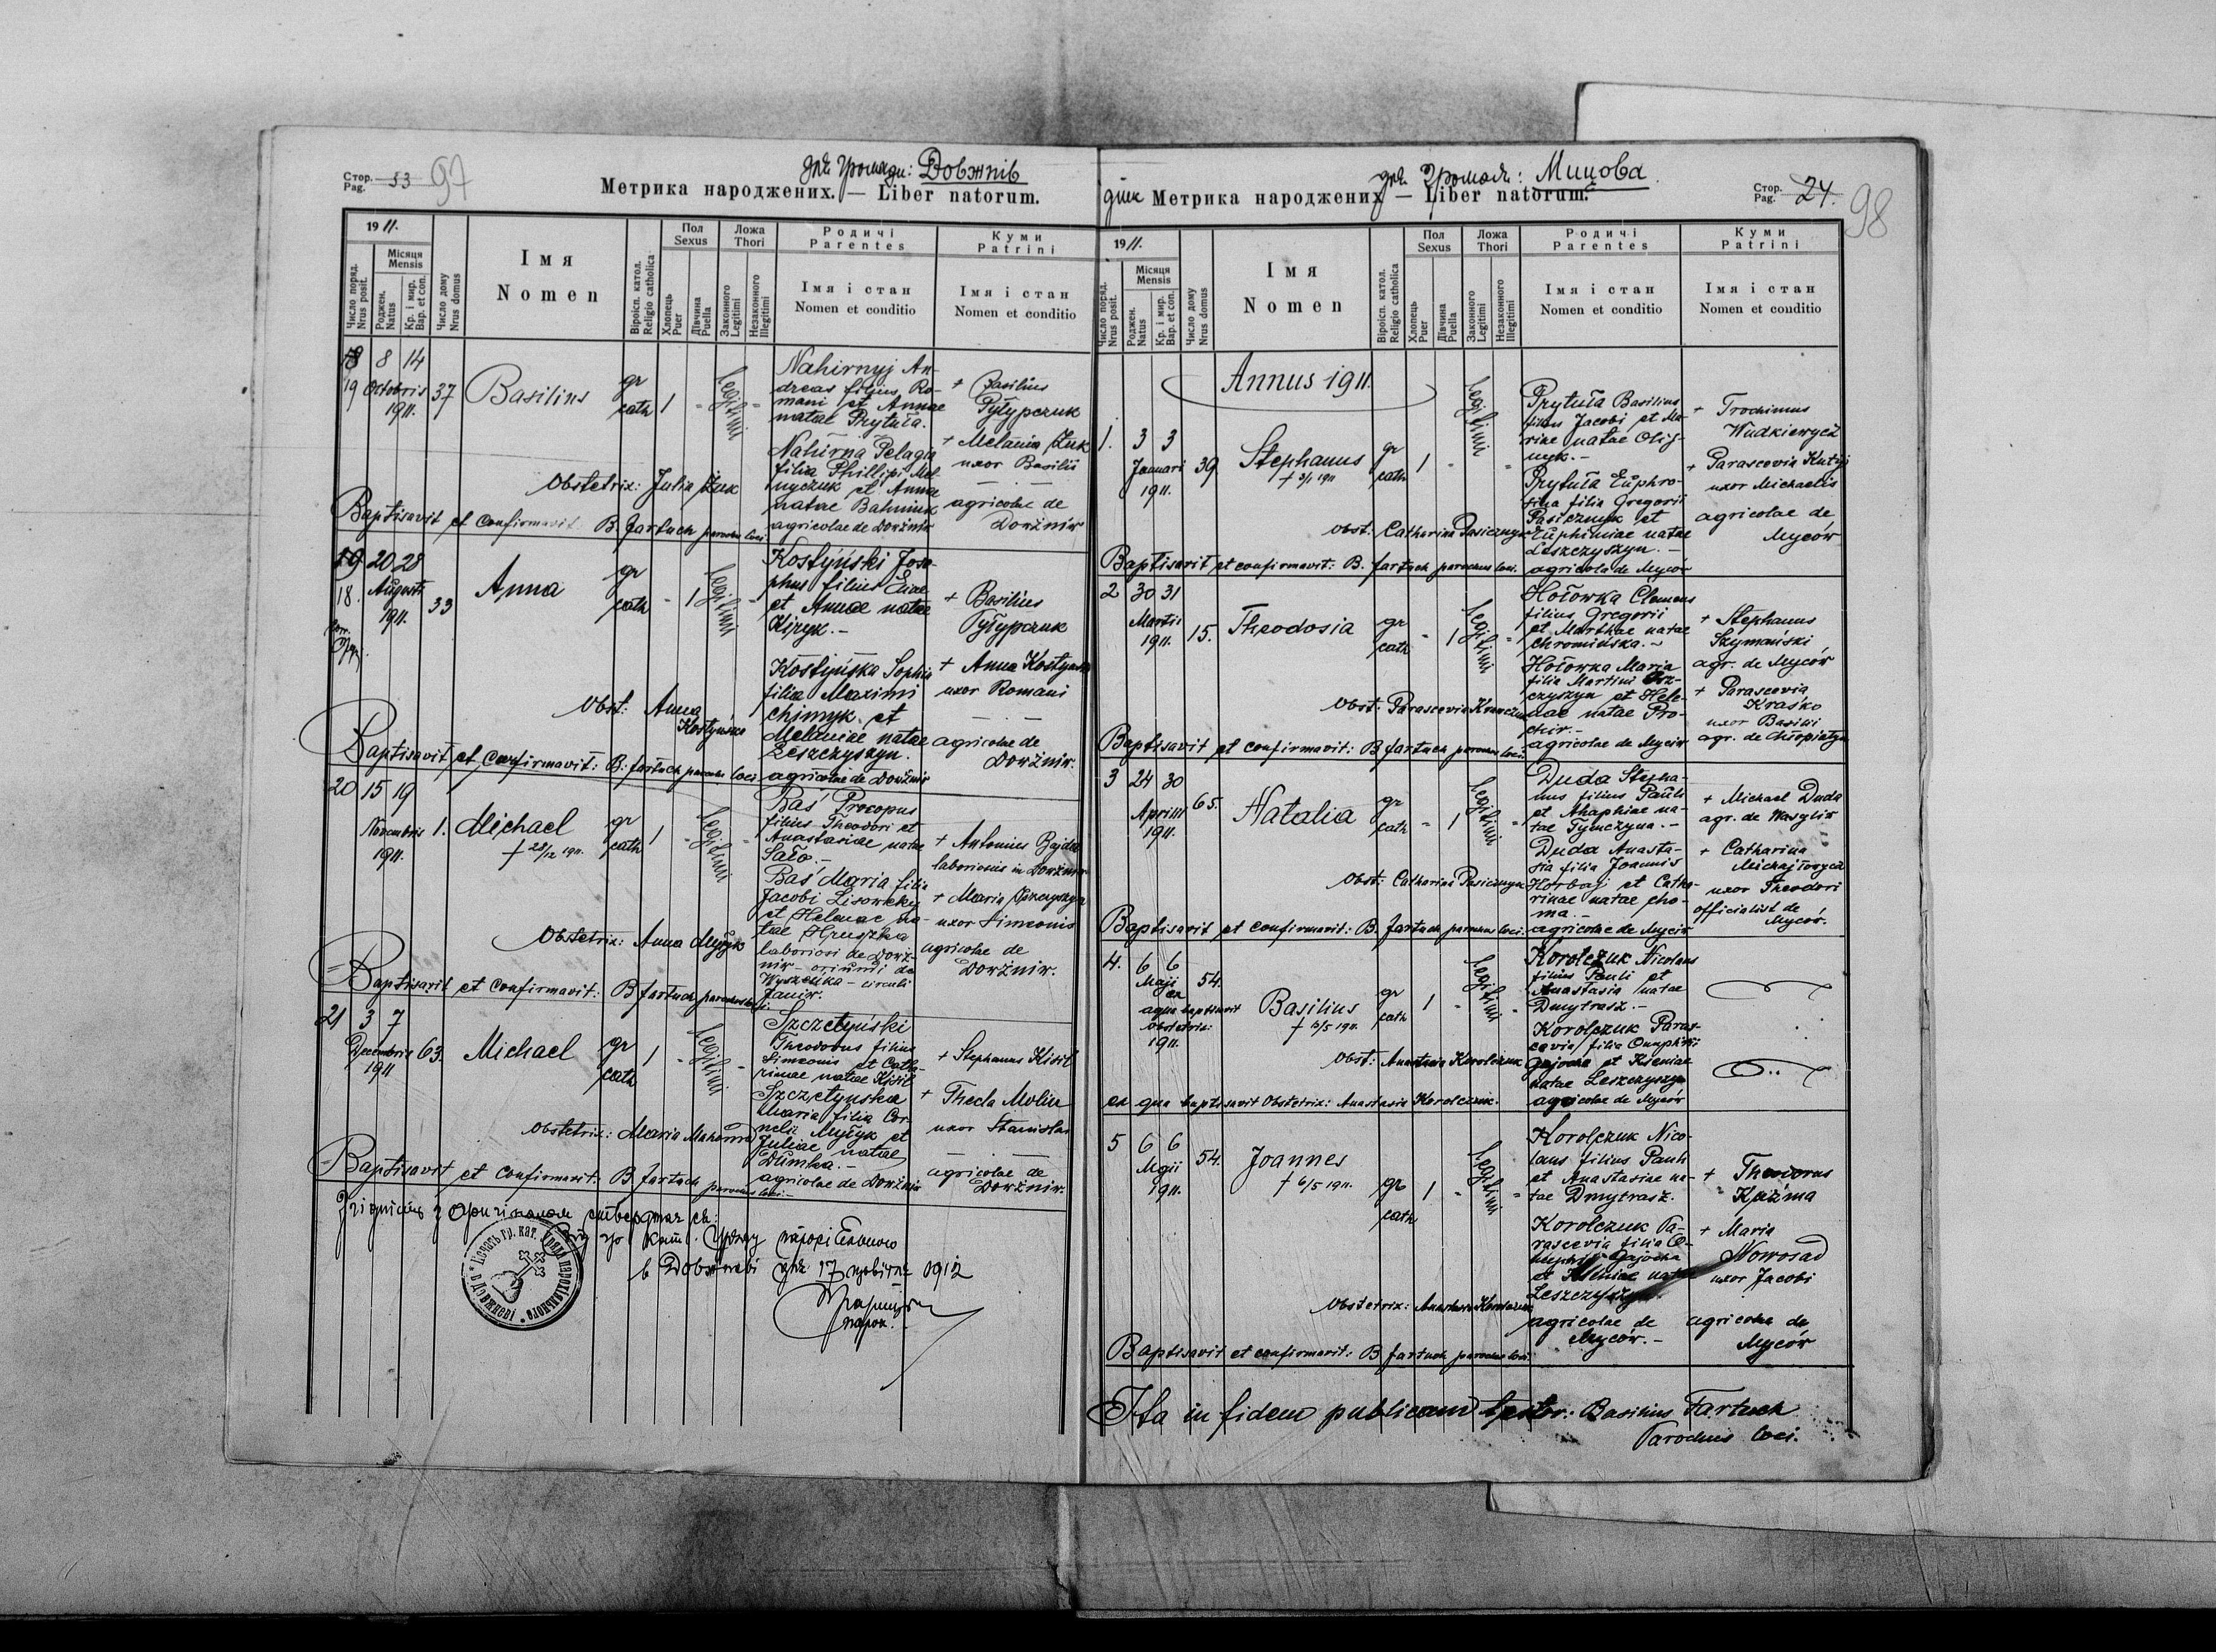 Стор.
Pag. 53 97
для громади: Довжнів
Метрика народжених. — Liber natorum.
1911.
Число поряд.
Nrus posit.
Місяця
Mensis
Роджен.
Natus
Кр. і мир.
Bap. et con.
Число дому
Nrus domus
Імя
Nomen
Віроісп. катол.
Religio catholica
Пол
Sexus
Хлопець
Puer
Дївчина
Puella
Ложа
Thori
Законного
Legitimi
Незаконного
Illegitimi
Родичі
Parentes
Імя і стан
Nomen et conditio
Куми
Patrini
Імя і стан
Nomen et conditio
18
19
8 14
Octobris
1911.
37
Basilius
gr
cath
1
"
legitimi
"
Nahirnyj An-
dreas filius Ro-
mani et Annae
natae Prytuła.
Nahirna Pelagia
filia Phillipi Mel-
nyczuk et Anna
natae Bahniuk
agricolae de Dowżniw
+ Basilius
Pyłypczuk
+ Melania Żuk
uxor Basilii
agricolae de
Dowżniw
Obstetrix: Julia Żuk
Baptisavit et confirmavit B. Fartuch parochus loci.
19
18.
20 28
Augusti
1911.
33
Anna
gr
cath
"
1
legitimi
"
Kostyński Jose-
phus filius Eliae
et Annae natae
Kizyk. -
Kostyńska Sophia
filia Maximi
Chimyk et
Melaniae natae
Leszczyszyn.
agricolae de Dowżniw
+ Basilius
Pyłypczuk
+ Anna Kostyńska
uxor Romani
agricolae de
Dowżniw.
Obst: Anna
Kostyńska
Baptisavit et confirmavit: B. Fartuch parochus loci.
20
15 19
Novembris
1911.
1.
Michael
† 28/12 1911.
gr
cath
1
"
legitimi
"
Baś Procopus
filius Theodori et
Anastasiae natae
Sało. -
Baś Maria filia
Jacobi Lisowicky
et Helenae na-
tae Hruszka
laboriosi de Dowż-
niw - oriundi de
circuli
Janiw.
+ Antonius Bajda
laboriosus in Dowżniw
+ Maria
uxor Simeonis
agricolae de
Dowżniw.
Obstetrix: Anna Mużyk
Baptisavit et confirmavit: B Fartuch parochus loci.
21
3 7
Decembris
1911
63.
Michael
gr
cath
1
"
legitimi
"
Szczetyński
Theodorus filius
Simeonis et Catha-
rinae natae Kisil
Szczetynska
Maria filia Cor-
nelii Myłyk et
Juliae natae
Dumka. -
agricolae de Dowżniw
+ Stephanus Kisil
+ Thecla Molin
uxor Stanislai
agricolae de
Dowżniw.
Obstetrix: Maria
Baptisavit et confirmavit: B. Fartuch parochus loci.
Згідність з оригіналом стверджає ся:
Від гр кат. Уряду парохіяльного
в Довжневі дня 17 цвітня 1912
Фартух
парох.
Печать гр. кат. Уряда парохіяльного
Стор.
Pag. 24. 98
для громади: Мицова
Метрика народжених — Liber natorum.
1911.
Число поряд.
Nrus posit.
Місяця
Mensis
Роджен.
Natus
Кр. і мир.
Bap. et con.
Число дому
Nrus domus
Імя
Nomen
Віроісп. катол.
Religio catholica
Пол
Sexus
Хлопець
Puer
Дївчина
Puella
Ложа
Thori
Законного
Legitimi
Незаконного
Illegitimi
Родичі
Parentes
Імя і стан
Nomen et conditio
Куми
Patrini
Імя і стан
Nomen et conditio
Annus 1911.
1.
3 3
Januari
1911.
39
Stephanus
† 3/1 1911
gr
cath
1
"
legitimi
"
Prytuła Basilius
filius Jacobi et Ma-
riae natae Olij-
nyk. -
Prytuła Euphro-
sina filia Gregorii
Pasicznyk et
Euphimiae natae
Leszczyszyn. -
agricola de Myców
+ Trochimus
Wudkiewycz
+ Parascevia
uxor Michaelis
agricolae de
Myców
Obst: Catharina Pasicznyk
Baptisavit et confirmavit: B. Fartuch parochus loci.
2
30 31
Martii
1911.
15.
Theodosia
gr
cath
"
1
legitimi
"
Hołowka Clemens
filius Gregorii
et Marthae natae
Chromińska. -
Hołowka Maria
filia Martini
czyszyn et Hele-
nae natae Pro-
chir. -
agricolae de Myców
+ Stephanus
Szymański
agr. de Myców
+ Parascevia
Kraśko
uxor Basilii
agr. de Chłopiatyn
Obst: Parascevia
Baptisavit et confirmavit: B Fartuch parochus loci.
3
24 30
Aprilii
1911.
65.
Natalia
gr
cath
"
1
legitimi
"
Duda Stepha-
nus filius Pauli
et Ahaphiae na-
tae Tymczyna. -
Duda Anasta-
sia filia Joannis
Horbaj et Catha-
rinae natae Cho-
ma. -
agricolae de Myców
+ Michael Duda
agr. de Wasyliw
+ Catharina
Michajłowycz
uxor Theodori
officialist de
Myców.
Obst: Catharina Pasicznyk
Baptisavit et confirmavit: B. Fartuch parochus loci.
4.
6 6
Maji
ex
aqua baptisavit
obstetrix:
1911.
54.
Basilius
† 6/5 1911.
gr
cath
1
"
legitimi
"
Korolczuk Nicolaus
filius Pauli et
Anastasia natae
Dmytrasz. -
Korolczuk Paras-
cevia filia Onuphrii
Gajocha et Kseniae
natae Leszczyszyn
agricolae de Myców
Obst: Anastasia Korolczuk
ex qua baptisavit Obstetrix: Anastasia Korolczuk.
5
6 6
Maji
1911.
54.
Joannes
† 6/5 1911.
gr
cath
1
"
legitimi
"
Korolczuk Nico-
laus filius Pauli
et Anastasiae na-
tae Dmytrasz.
Korolczuk Pa-
rascevia filia O-
nuphrii Gajocha
et Kseniae natae
Leszczyszyn
agricolae de
Myców. -
+ Theodorus
Kuźma
+ Maria
Noworad
uxor Jacobi
agricolae de
Myców
Obstetrix: Anastasia Korolczuk
Baptisavit et confirmavit: B Fartuch parochus loci.
Ita in fidem publicam testor: Basilius Fartuch
Parochus loci.